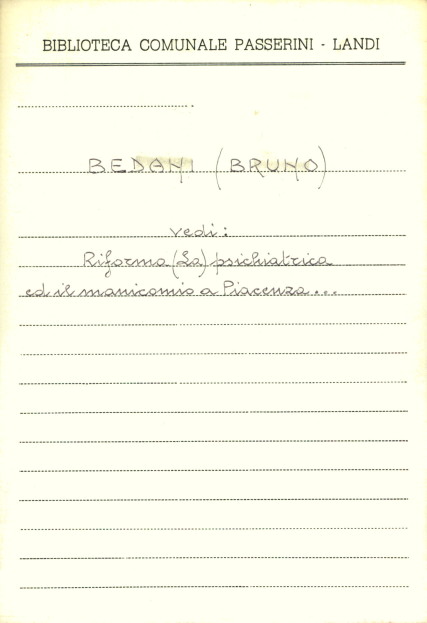 BIBLIOTECA COMUNALE PASSERINI - LANDI
BEDANI (BRUNO)
vedi:
Riforma (La) psichiatrica
ed il manicomio a Piacenza...